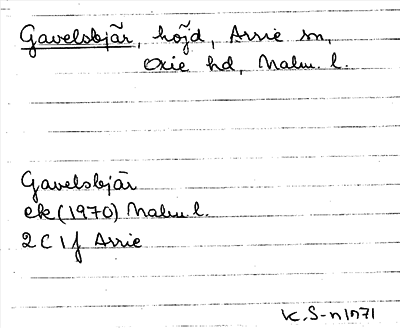 Gavelsbjär, höjd, Arrie sn,
Oxie hd, Malm. l.
Gavelsbjär
ek (1970) Malm l.
2 C 1 f Arrie
K. S-n 1971